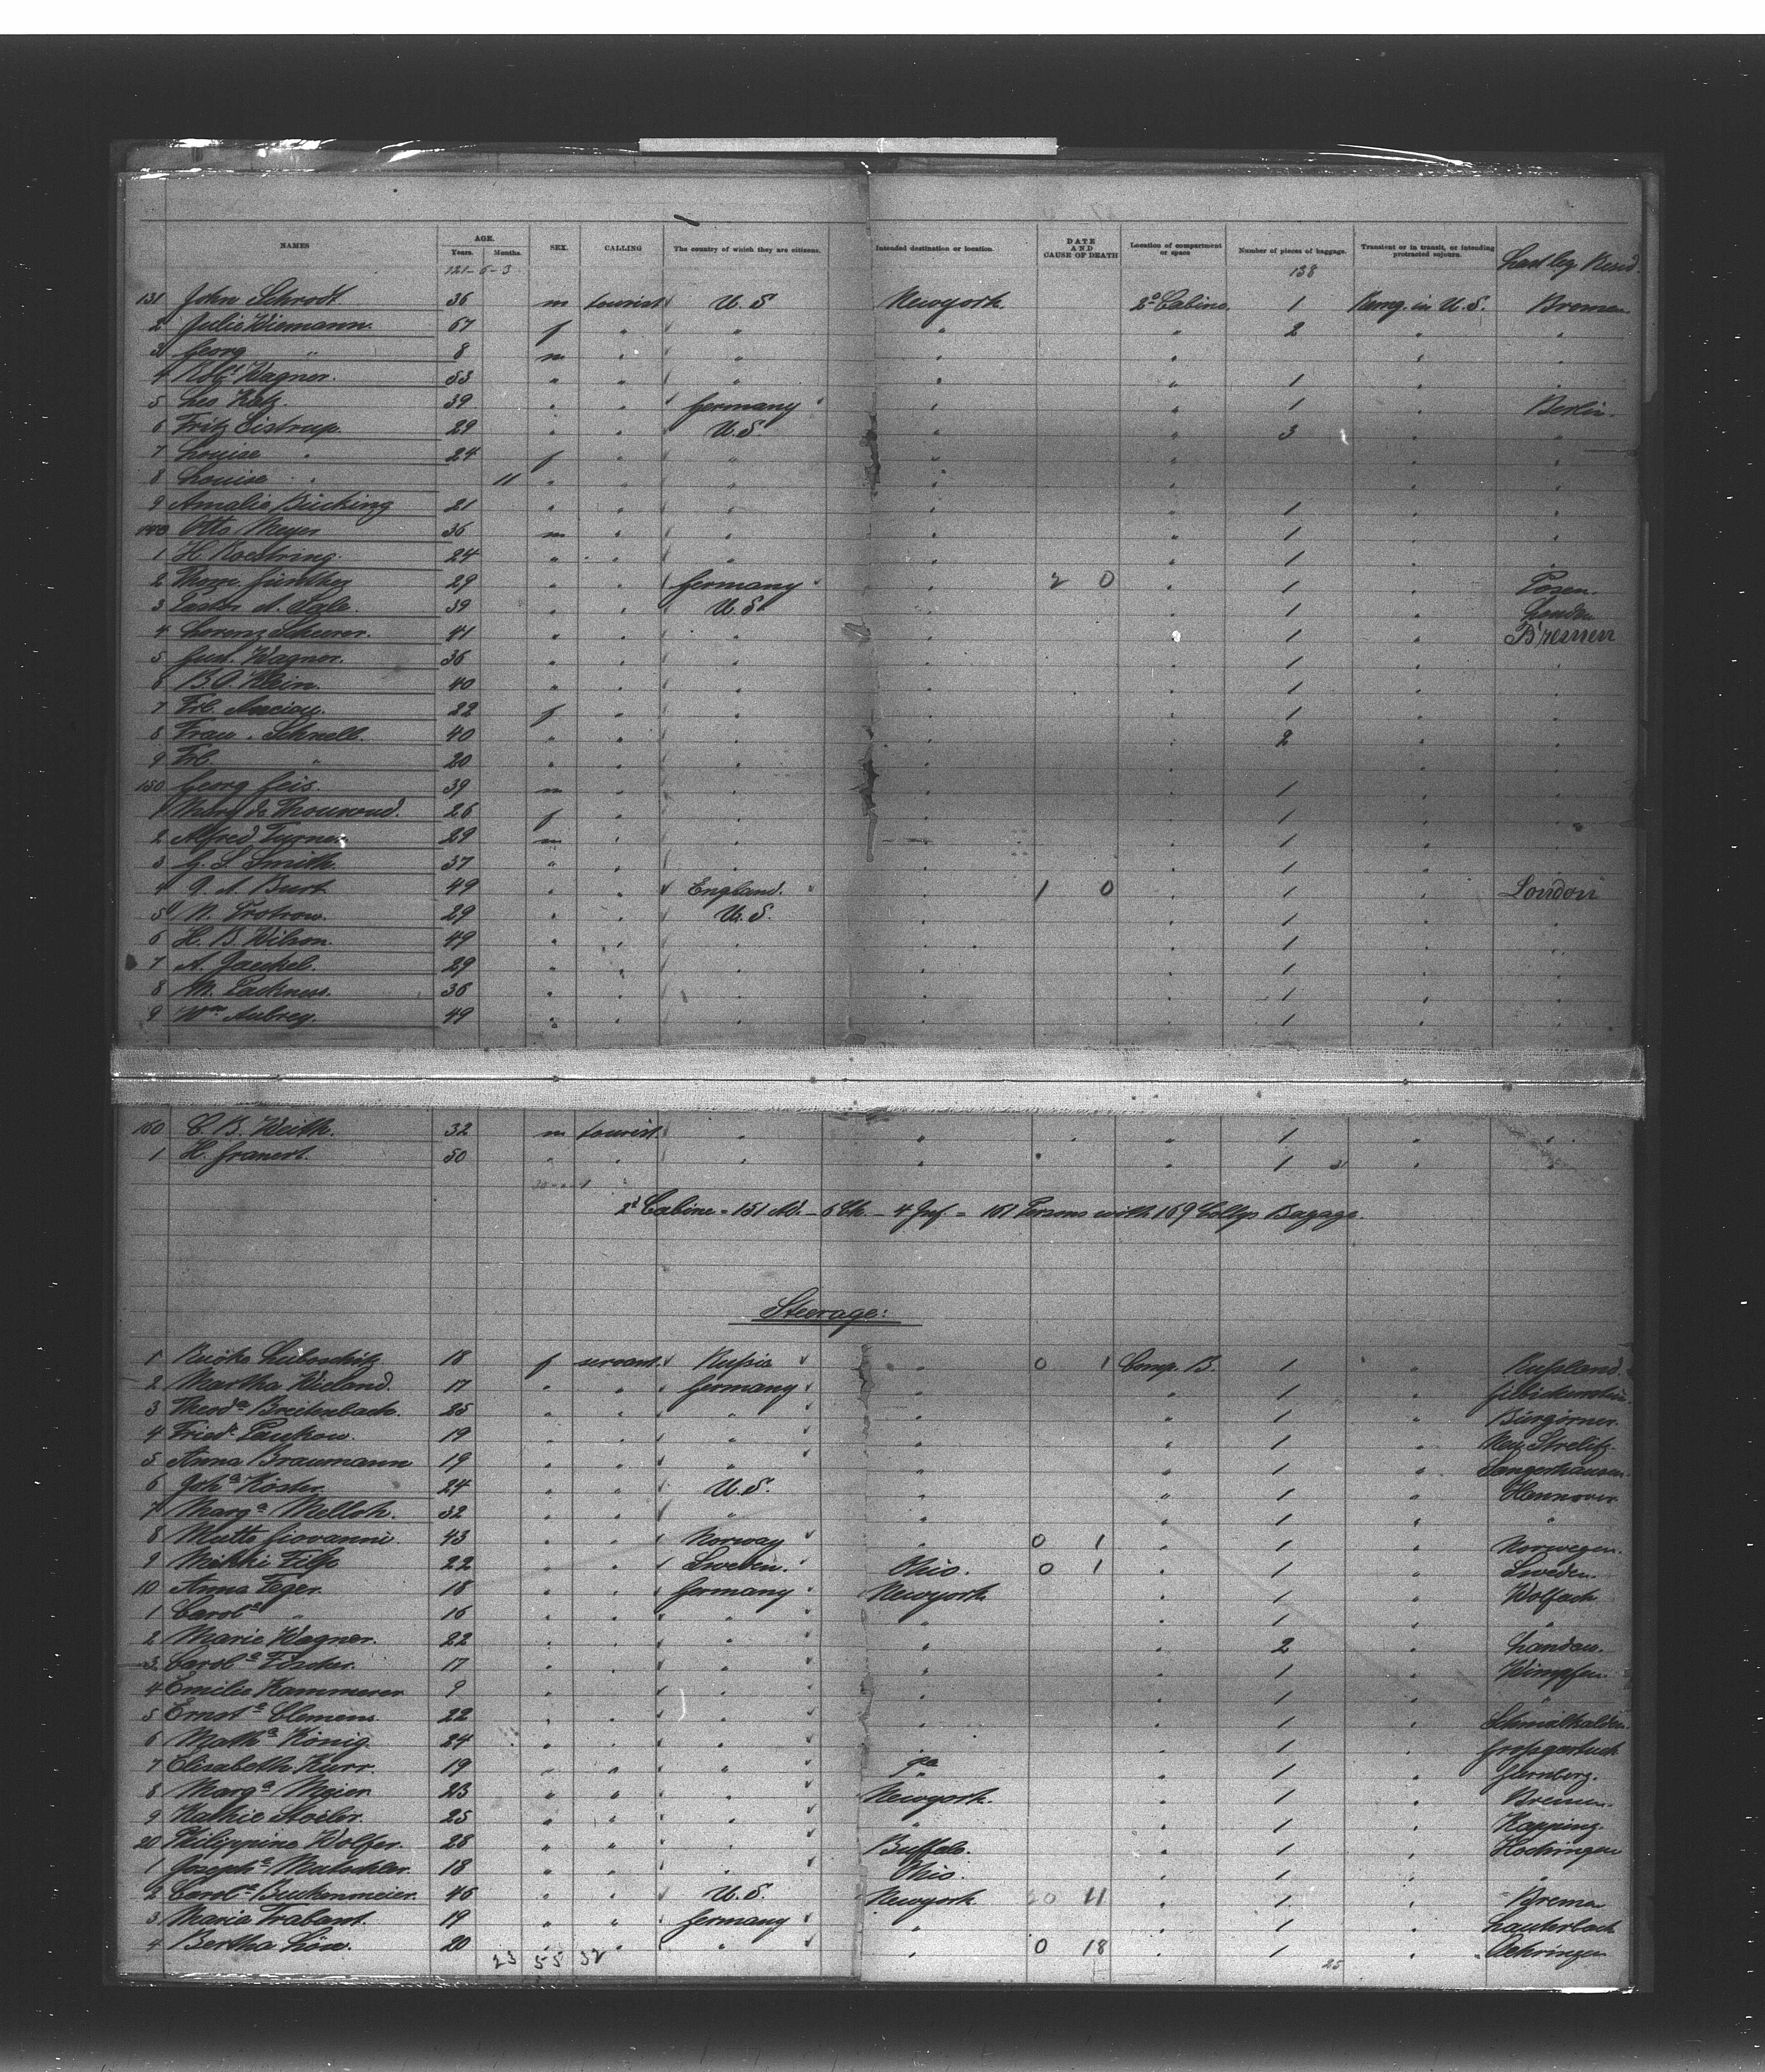 NAMES AGE. Years. Months. SEX. CALLING The country of which they are citizens. Intended destination or location. DATE AND CAUSE OF DEATH Location of compartment or space Number of pieces of baggage. Transient or in transit, or intending protracted sojourn. Last leg Resid.
121-6-3 138
131 John Schrodt 36 m tourist U.S Newyork 2d Cabine 1 in U.S. Bremen
2 Julie Wiemann. 67 f " " " " 2 " "
3 Georg " 8 m " " " " " "
4 Robt Wagner. 53 " " " " " 1 " "
5 Leo Katz. 39 " " Germany " " 1 " Berlin.
6 Fritz Eistrup. 29 " " U.S. " " 3 " "
7 Louise " 24 f " " " " " "
8 Louise " 11 " " " " " " "
9 Amalie Bücking 21 " " " " " 1 " "
140 Otto Meyer 36 m " " " " 1 " "
1 H. Koestring. 24 " " " " " 1 " "
2 Thom. 29 " " Germany " 2 0 " 1 " Posen.
3 Pastor A. Sale. 39 " " U.S. " " 1 " London
4 Lorenz Scheerer. 41 " " " " " 1 " Bremen
5 Gust. Wagner. 36 " " " " " 1 " "
6 B.O. Klein. 40 " " " " " 1 " "
7 Frl. 22 f " " " " 1 " "
8 Frau. Schnell. 40 " " " " " 2 " "
9 Frl. " 20 " " " " " " "
150 Georg Geis. 39 m " " " " 1 " "
1 Mary de Thouroud. 26 f " " " " 1 " "
2 Alfred Turner. 29 m " " " " 1 " "
3 G. L. Smith. 37 " " " " " 1 " "
4 A. Burt 49 " " England. " 1 0 " 1 " London
5 N. Trotrow. 29 " " U.S. " " 1 " "
6 H. B. Wilson. 49 " " " " " 1 " "
7 A. Jaeckel. 29 " " " " " 1 " "
8 M. Packness. 36 " " " " " 1 " "
9 Wm Aubrey. 49 " " " " " 1 " "
160 C. B. Weith. 32 m tourist " " " 1 " "
1 H. Granert. 50 " " " " " 1 31 " "
2d Cabine = 151 Ad. - 6 Ch. - 4 Inf. = 161 Persons with 169 Collys Bagage.
Steerage:
1 Luboschitz 18 f servant Rußia " 0 1 Comp. B. 1 " Rußland
2 Martha Wieland. 17 " " Germany " " 1 "
3 Theoda Breitenbach. 25 " " " " " 1 " Bürgörner.
4 Friedr. Pankow. 19 " " " " " 1 " Neu Strelitz
5 Anna Braumann 19 " " " " " 1 " Sangerhausen.
6 Joha Köster. 24 " " U.S. " " 1 " Hannover
7 Marga Melloh. 32 " " " " " 1 " "
8 Matte Giovanni 43 " " Norway " 0 1 " 1 " Norwegen.
9 Mikki Filp 22 " " Sweden. Ohio. 0 1 " 1 " Sweden.
10 Anna Feger. 18 " " Germany Newyork " 1 " Wolfach
1 Carola " 16 " " " " " 1 " "
2 Marie Wagner. 22 " " " " " 2 " Landau.
3 Carola Fischer. 17 " " " " " 1 " Wimpfen.
4 Emilie Kammerer 9 " " " " " 1 " "
5 Ernsta Clemens. 22 " " " " " 1 " Schmalkalden
6 Matha König. 24 " " " " " 1 "
7 Elisabeth Kurr. 19 " " " Pa " 1 "
8 Marga Meier 23 " " " Newyork. " 1 " Bremen.
9 Kathie Stoiber. 25 " " " " " 1 " Kopping.
20 Philippine Wolfer. 28 " " " Buffalo. " 1 " Hochingen
1 Josepha Matschler. 18 " " " Ohio. " 1 " "
2 Carola Buckenmeier 46 " " U.S. Newyork 20 11 " 1 " Bremen
3 Maria Trabant. 19 " " Germany " " 1 " Lauterbach
4 Bertha Löw. 20 " " " " 0 18 " 1 " Oehringen
23 55 32 25